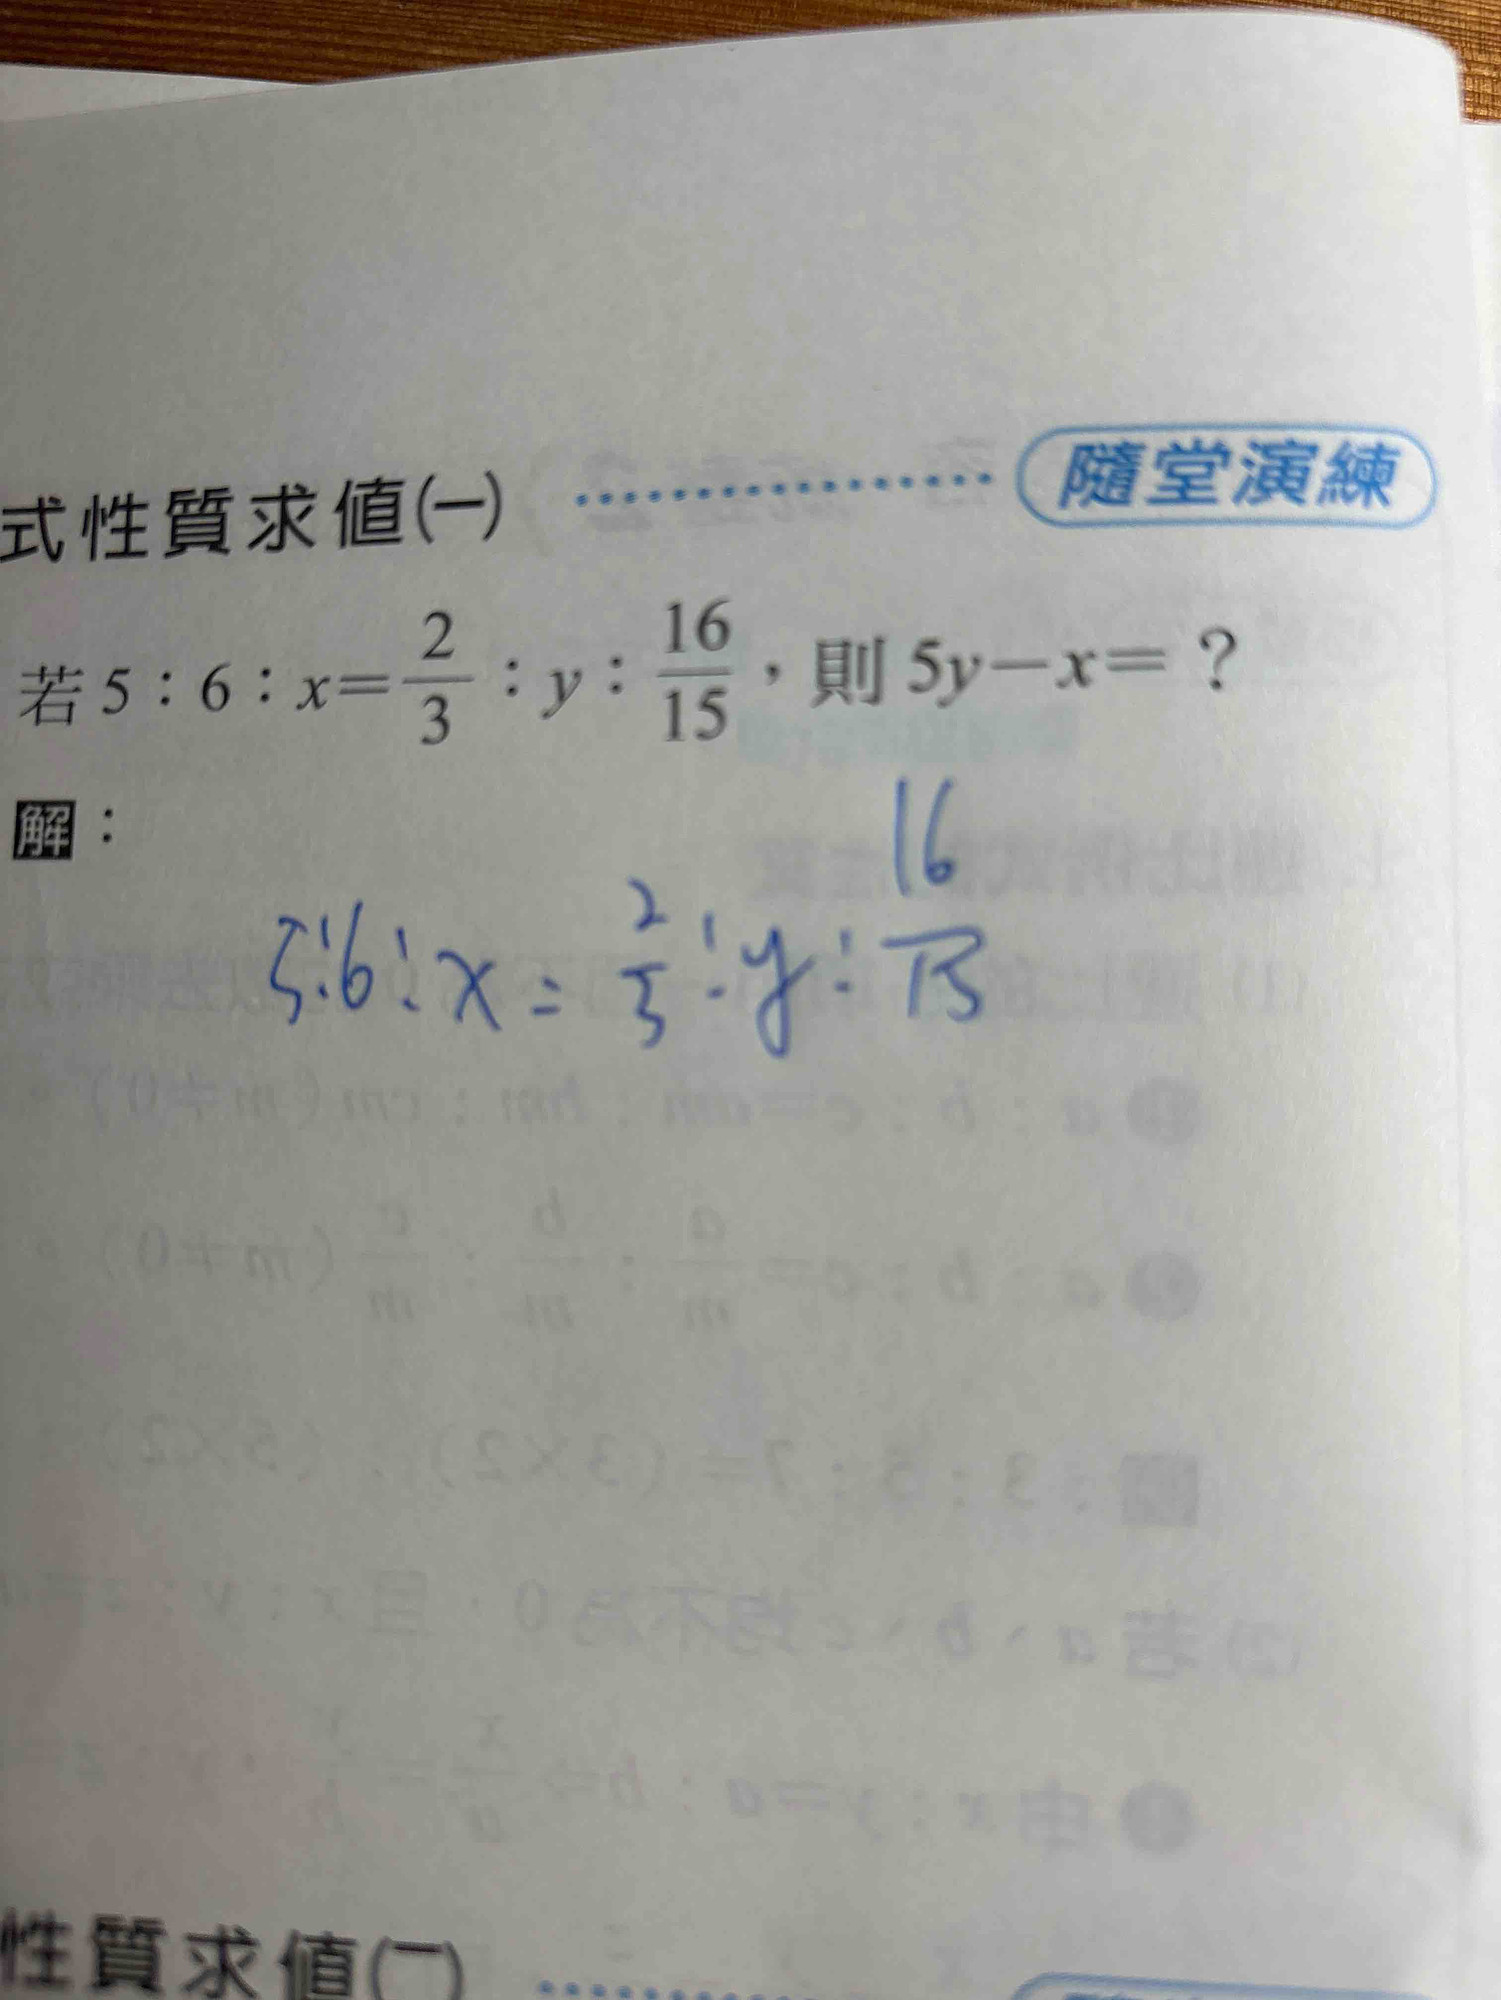 式性質求值(一) 隨堂演練
若 5：6：x=2/3：y：16/15，則 5y－x=？
解：
5:6:x = 2/3 : y : 16/15
性質求值(二)